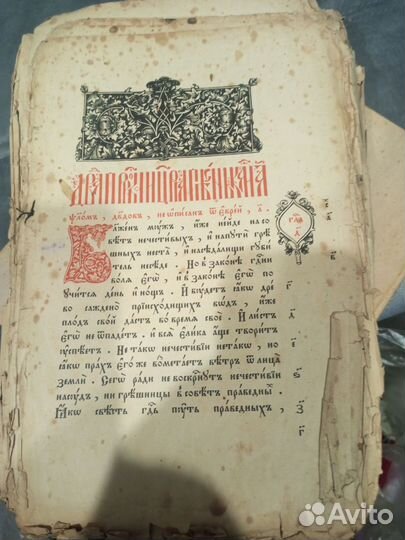 Ѱало́мъ, дв҃довъ, не ѡ҆писан ѿ є҆врей, а҃.
Блаже́нъ мꙋжъ, и҆́же не и҆́де на со
вѣ́тъ нечести́выхъ, и҆ напꙋтѝ грѣ́
шныхъ не ста̀, и҆ насѣда́лищи гꙋби́
тель несѣ́де. Но въ зако́нѣ гдⷭ҇ни
во́лѧ є҆гѡ̀, и҆ въ зако́нѣ є҆гѡ̀ по
ꙋчи́тсѧ де́нь и҆ но́щь. И҆ бꙋ́детъ ꙗ҆́кѡ дре́
во сажде́но при и҆схо́дищихъ во́дъ, є҆́же
пло́дъ сво́й да́стъ во вре́мѧ своѐ. И҆ ли́стъ
є҆гѡ̀ не ѿпаде́тъ. и҆ всѧ̑ є҆ли̑ка а҆́ще твори́тъ
ᲂу҆спѣ́етъ. Не та́кѡ нечести́вїи не та́кѡ, но
ꙗ҆́кѡ пра́хъ є҆го́же возмета́етъ вѣ́тръ ѿ лица̀
землѝ. Сегѡ̀ ра́ди не воскре́снꙋтъ нечести́вїи
насꙋ́дъ, ни грѣ́шницы в совѣ́тъ пра́ведныⷯ.
Ꙗ҆́кѡ свѣ́сть гдⷭ҇ь пꙋ́ть пра́ведныхъ,
Avito